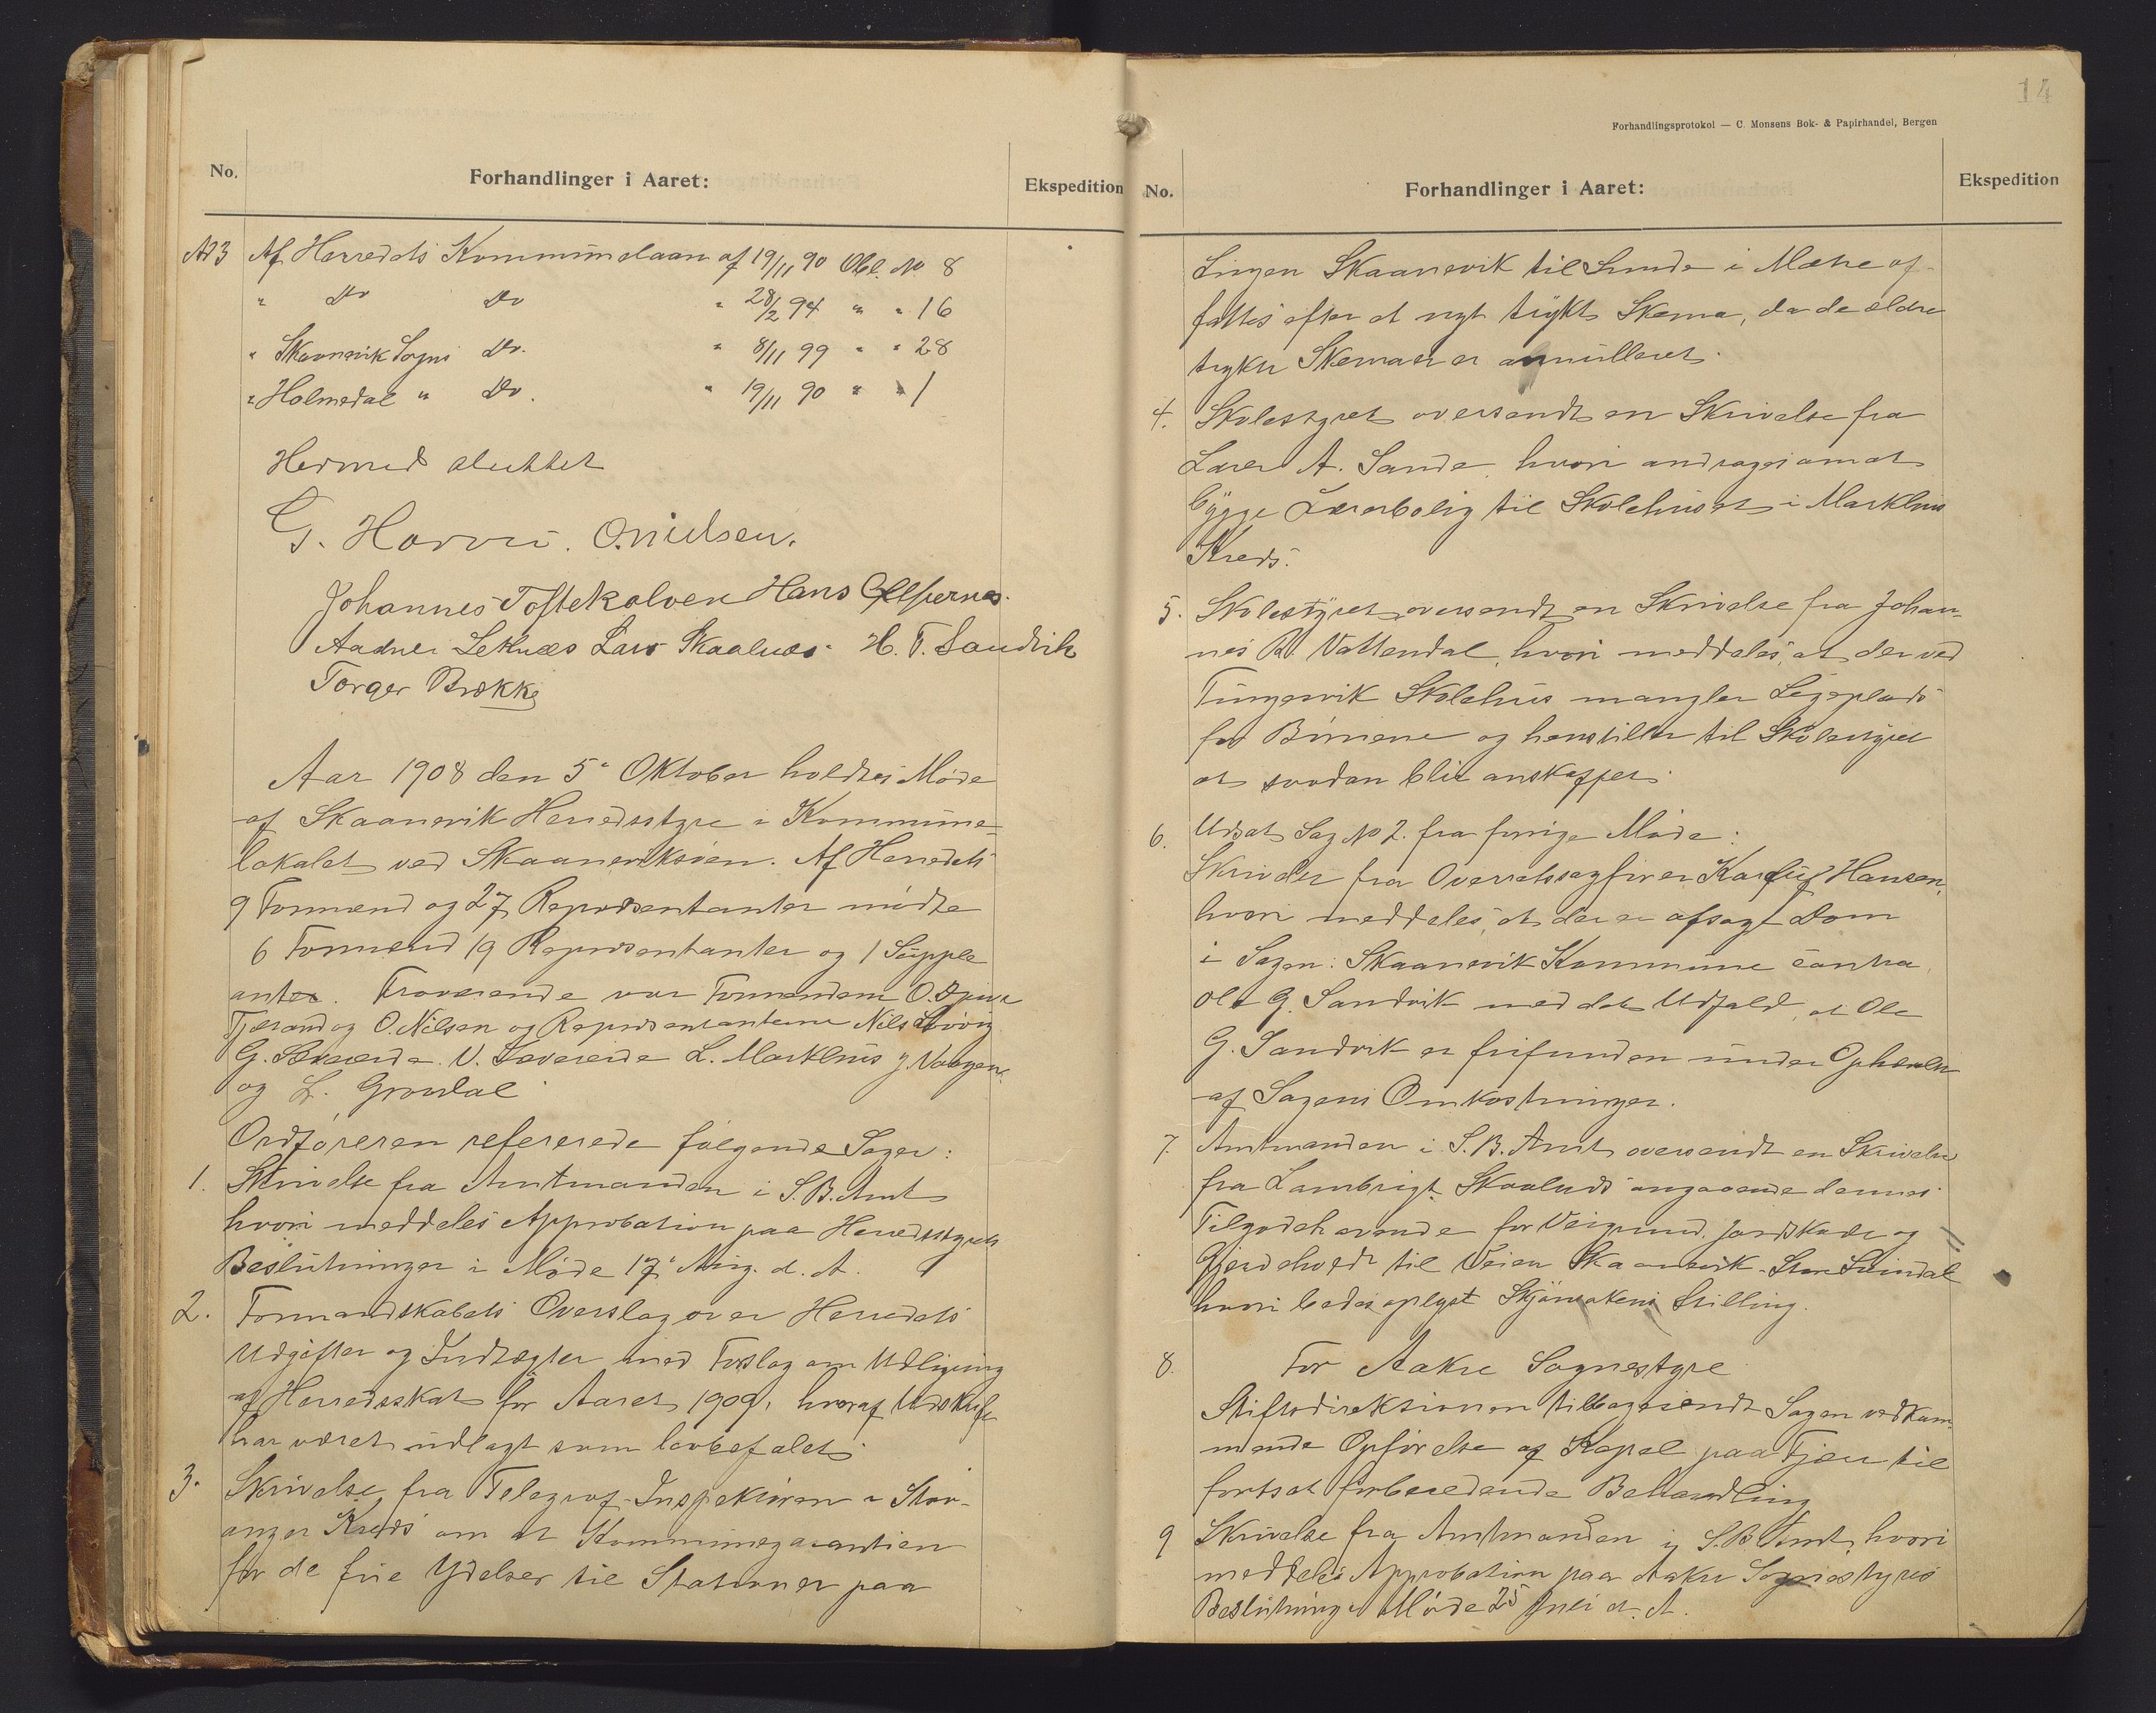 No. Forhandlinger i Aaret: Ekspedition
No 3 Af Herredets Kommunelaan af 19/11 90 Obl. No 8
" Do Do " 28/2 94 " " 16
" Skaanevik Sogns Do. " 8/11 99 " " 28
" Holmedal " Do. " 19/11 90 " " 1
Hermed sluttet
G. Horvei. O. Nielsen.
Johannes Toftekalven Hans
Aadne Leknæs Lars Skaalnes. H. T. Sandvik
Torger Brekke
Aar 1908 den 5' Oktober holdtes Møde
af Skaanevik Herredsstyre i Kommune-
lokalet ved Skaaneviksøen. Af Herredets
9 Formænd og 27 Repræsentanter mødte
6 Formænd 19 Repræsentanter og 1 Supple
ant. Fraværende var Formændene O.
Tjeraand og O. Nilsen og Repræsentanterne Nils
G. V. Sævereide L. Marklhus J. Vaagen
og L. Grondal
Ordføreren refererede følgende Sager:
1. Skrivelse fra Amtmanden i S. B. Amt
hvori meddeles Approbation paa Herredsstyrets
Beslutninger i Møde 17' Aug. d. A.
2. Formandskabets Overslag over Herredets
Udgifter og Indtægter med Forslag om Udligning
af Herredsskat for Aaret 1909, hvoraf Udskrift
har været udlagt som lovbefalet.
3. Skrivelse fra Telegraf-Inspektøren i Stav-
anger Kreds om at Kommunegarantien
for de frie Ydelser til Stationer paa
14
Forhandlingsprotokol — C. Monsens Bok- & Papirhandel, Bergen
No. Forhandlinger i Aaret: Ekspedition
Linjen Skaanevik til Lunde i Matre af-
fattes efter et nyt trykt Skema, da de ældre
trykte Skemaer er annulleret.
4. Skolestyret oversendt en Skrivelse fra
Lærer A. Sande hvori andrages om at
bygge Lærerbolig til Skolehuset i Marklhus
Kreds.
5. Skolestyret oversendt en Skrivelse fra Johan-
nes B. Vattendal, hvori meddeles, at der ved
Tungesvik Skolehus mangler Legeplads
for Børnene og henstiller til Skolestyret
at saadan blir anskaffet.
6. Udsat Sag No 2. fra forrige Møde:
Skrivelse fra Overretssagfører Hansen,
hvori meddeles, at der er afsagt Dom
i Sagen: Skaanevik Kommune contra
Ole G. Sandvik med det Udfald, at Ole
G. Sandvik er frifunden under Ophævelse
af Sagens Omkostninger.
7. Amtmanden i S. B. Amt oversendt en Skrivelse
fra Lambrigt Skaalnes angaaende dennes
Tilgodehavende for Veigrund, Jordskade og
Gjerdehold til Veien Skaanevik-
hvori bedes oplyst Skjønsakens Stilling.
8. For Aakre Sognestyre
Stiftsdirektionen tilbagesendt Sagen vedkom-
mende Opførelse af Kapel paa Fjæra til
fortsat forberedende Behandling
9 Skrivelse fra Amtmanden i S. B. Amt, hvori
meddeles Approbation paa Aakre Sognestyres
Beslutning i Møde 25 Juli d. A.